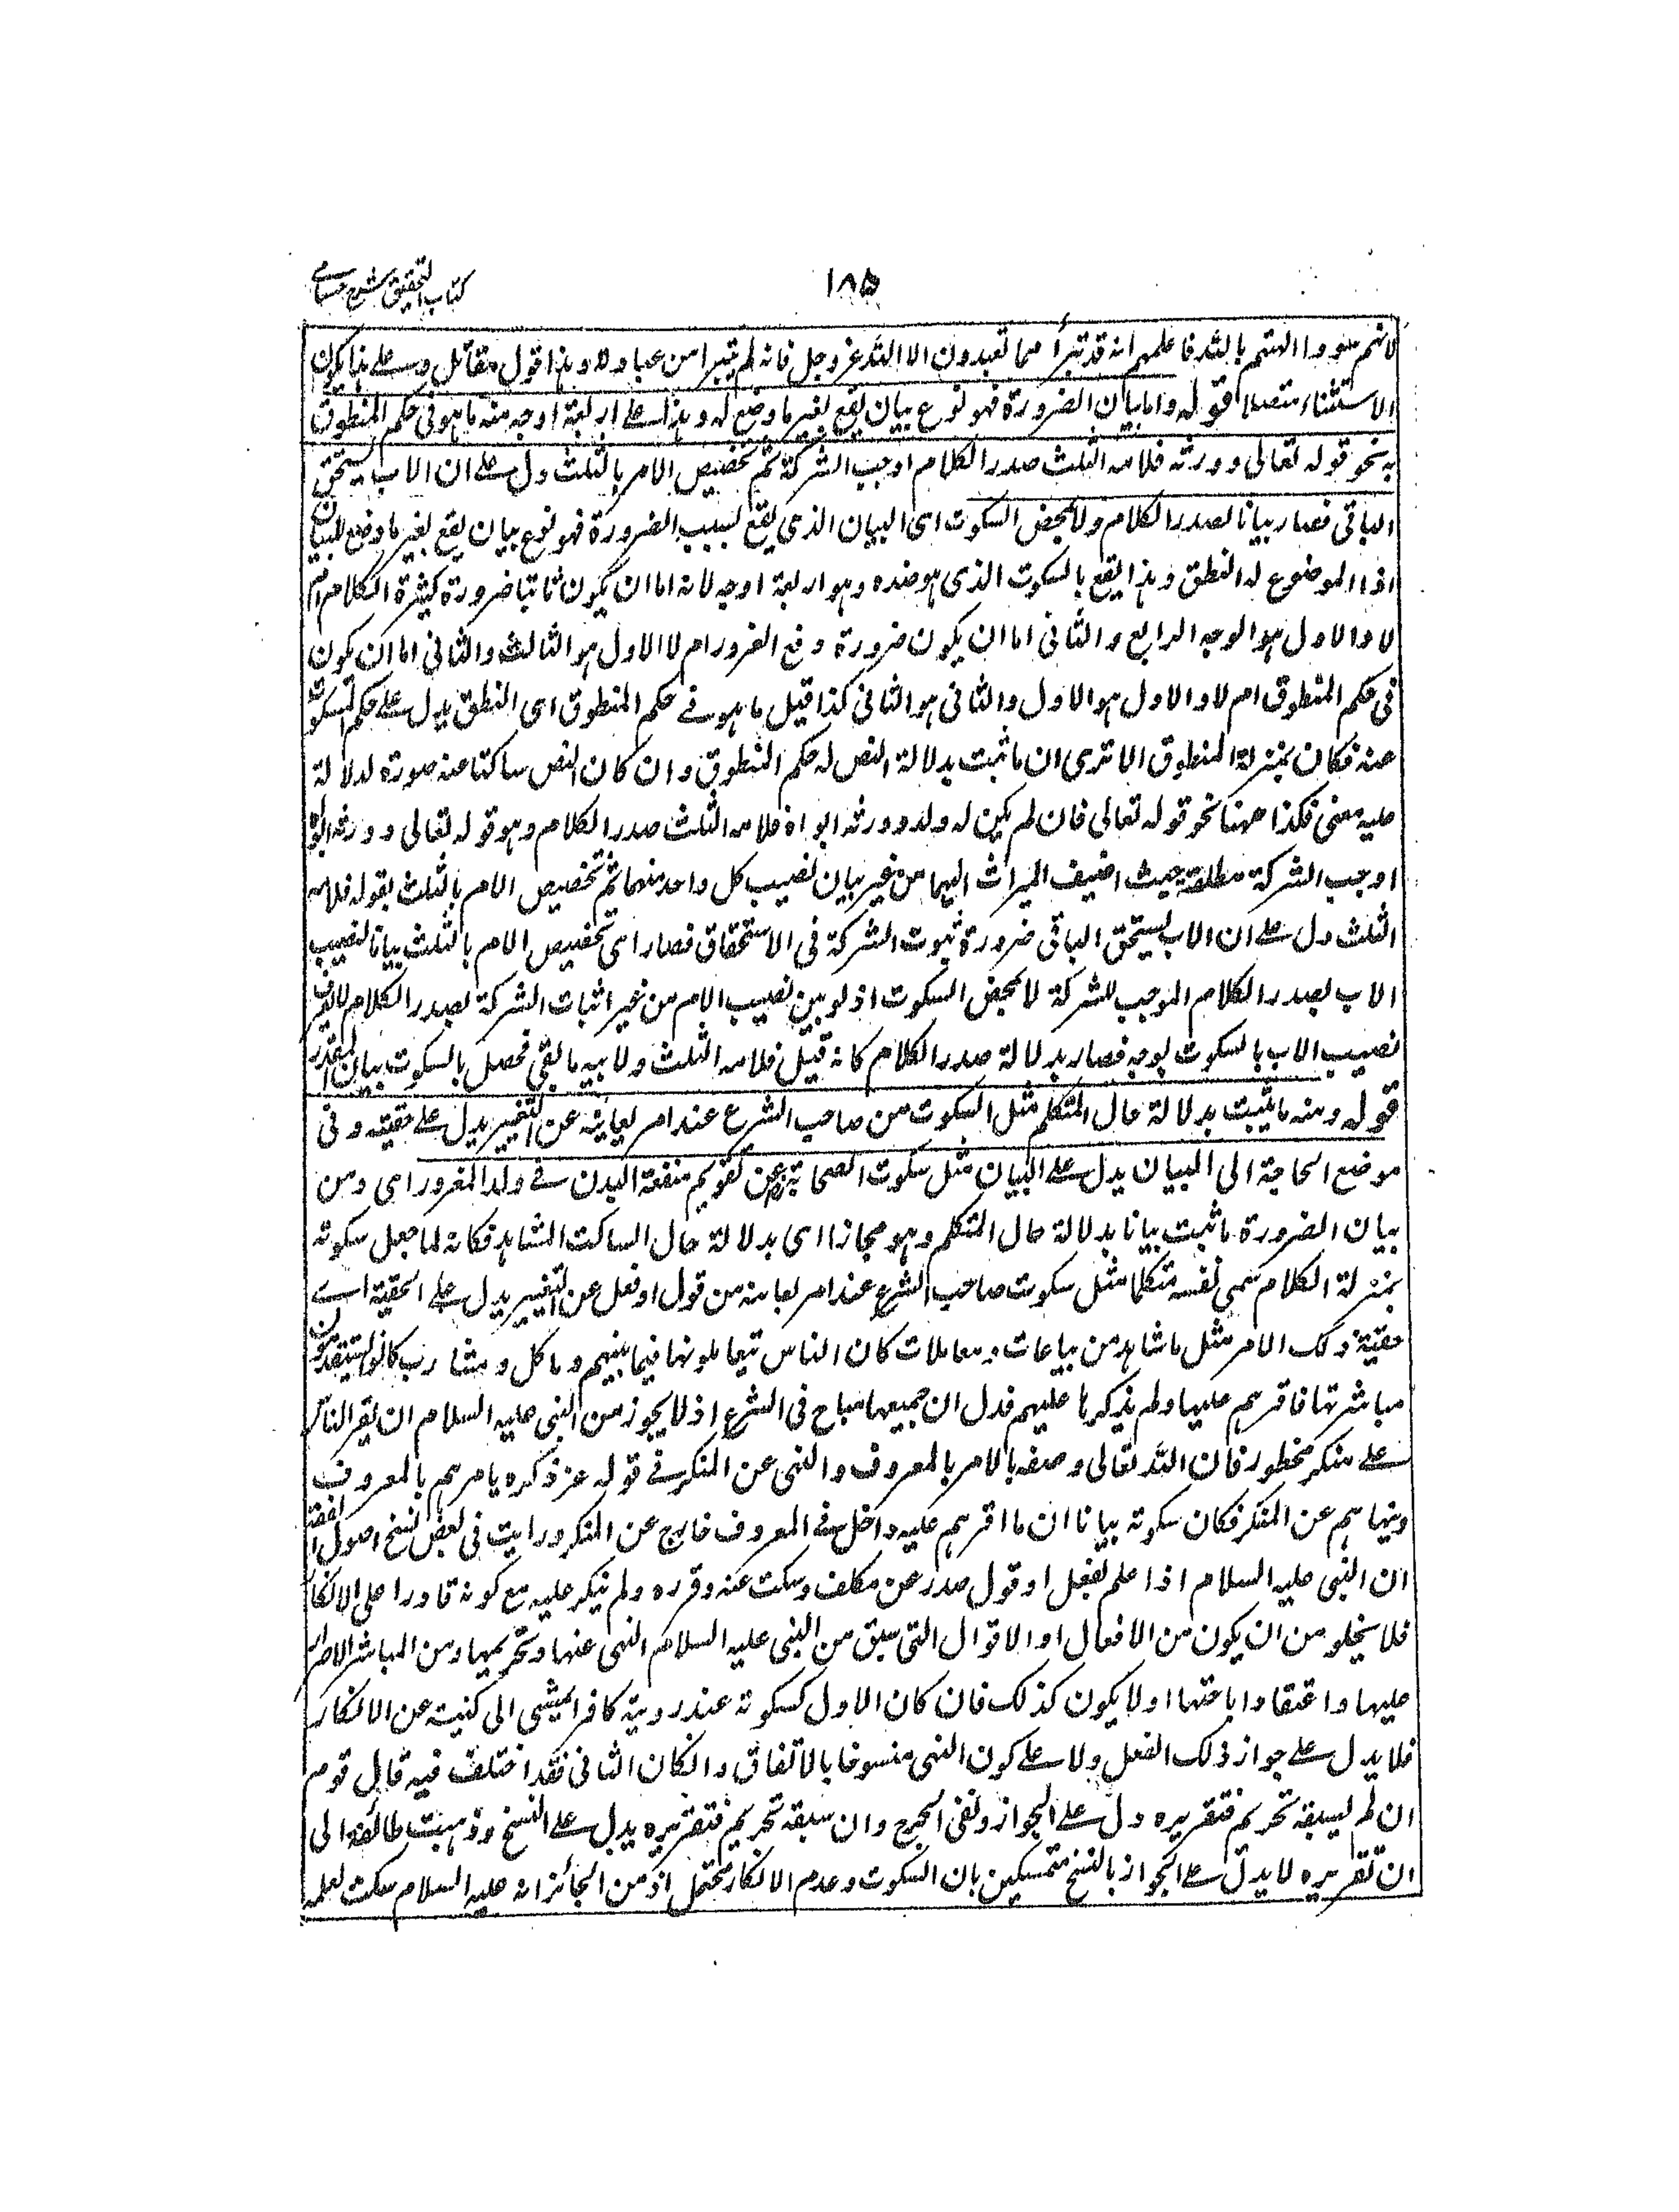 ١٨٥
كتاب التحقيق شرح حسامي
لانهم سووا الهتهم بالله فاعلمهم انه قد تبرأ مما تعبدون الا الله عز وجل فانه لم يتبرا من عبادته وهذا قول مقاتل وعلى هذا يكون
الاستثناء متصلا قوله واما بيان الضرورة فهو نوع بيان يقع بغير ما وضع له وهذا على اربعة اوجه منه ما هو فى حكم المنطوق
به نحو قوله تعالى وورثه فلامه الثلث صدر الكلام اوجب الشركة ثم تخصيص الام بالثلث دل على ان الاب يستحق
الباقى فصار بيانا لصدر الكلام ولا بمحض السكوت اى البيان الذى يقع بسبب الضرورة فهو نوع بيان يقع بغير ما وضع للبيان
اذا الموضوع له النطق وهذا يقع بالسكوت الذى هو ضده وهو اربعة اوجه لانه اما ان يكون ثابتا ضرورة كثرة الكلام ام
لا والاول هو الوجه الرابع والثانى اما ان يكون ضرورة دفع الغرور ام لا الاول هو الثالث والثانى اما ان يكون
فى حكم المنطوق ام لا والاول هو الاول والثانى هو الثانى كذا قيل ما هو فى حكم المنطوق اى النطق يدل على حكم المسكوت
عنه فكان بمنزلة المنطوق الا ترى ان ما ثبت بدلالة النص له حكم المنطوق وان كان النص ساكتا عنه صورة لدلالة
عليه معنى فكذا ههنا نحو قوله تعالى فان لم يكن له ولد وورثه ابواه فلامه الثلث صدر الكلام وهو قوله تعالى وورثه ابواه
اوجب الشركة مطلقة حيث اضيف الميراث اليهما من غير بيان نصيب كل واحد منهما ثم تخصيص الام بالثلث بقوله فلامه
الثلث دل على ان الاب يستحق الباقى ضرورة ثبوت الشركة فى الاستحقاق فصار اى تخصيص الام بالثلث بيانا لنصيب
الاب بصدر الكلام الموجب للشركة لا بمحض السكوت اذ لو بين نصيب الام من غير اثبات الشركة بصدر الكلام لا يعرف
نصيب الاب بالسكوت بوجه فصار بدلالة صدر الكلام كانه قيل فلامه الثلث ولابيه ما بقى فحصل بالسكوت بيان المقدر
قوله ومنه ما يثبت بدلالة حال المتكلم مثل السكوت من صاحب الشرع عند امر يعاينه عن التغيير يدل على حقيته وفى
موضع الحاجة الى البيان يدل على البيان مثل سكوت الصحابة رض عن تقويم منفعة البدن فى ولد المغرور اى ومن
بيان الضرورة ما ثبت بيانا بدلالة حال المتكلم وهو مجازا اى بدلالة حال الساكت المشاهد فكانه لما جعل سكوته
بمنزلة الكلام سمى نفسه متكلما مثل سكوت صاحب الشرع عند امر يعاينه من قول او فعل عن التغيير يدل على الحقية اى
حقية ذلك الامر مثل ما شاهد من بياعات ومعاملات كان الناس يتعاملونها فيما بينهم وماكل ومشارب كانوا يستقدمون
مباشرتها فاقرهم عليها ولم ينكرها عليهم فدل ان جميعها مباح فى الشرع اذ لا يجوز من النبى عليه السلام ان يقر الناس
على منكر محظور فان الله تعالى وصفه بالامر بالمعروف والنهى عن المنكر فى قوله عز ذكره يامرهم بالمعروف
وينهاهم عن المنكر فكان سكوته بيانا ان ما اقرهم عليه داخل فى المعروف خارج عن المنكر ورايت فى بعض نسخ اصول الفقه
ان النبى عليه السلام اذا علم بفعل او قول صدر عن مكلف وسكت عنه وقرره ولم ينكر عليه مع كونه قادرا على الانكار
فلا يخلو من ان يكون من الافعال او الاقوال التى سبق من النبى عليه السلام النهى عنها وتحريمها ومن المباشر الاصرار
عليها واعتقاد اباحتها او لا يكون كذلك فان كان الاول كسكوته عند روية كافر يمشى الى كنيسة عن الانكار
فلا يدل على جواز ذلك الفعل ولا على كون النهى منسوخا بالاتفاق وان كان الثانى فقد اختلف فيه قال قوم
ان لم يسبقه تحريم فتقريره دل على الجواز ونفى الحرج وان سبقه تحريم فتقريره يدل على النسخ وذهبت طائفة الى
ان تقريره لا يدل على الجواز بالنسخ متمسكين بان السكوت وعدم الانكار محتمل اذ من الجائز انه عليه السلام سكت لعلمه